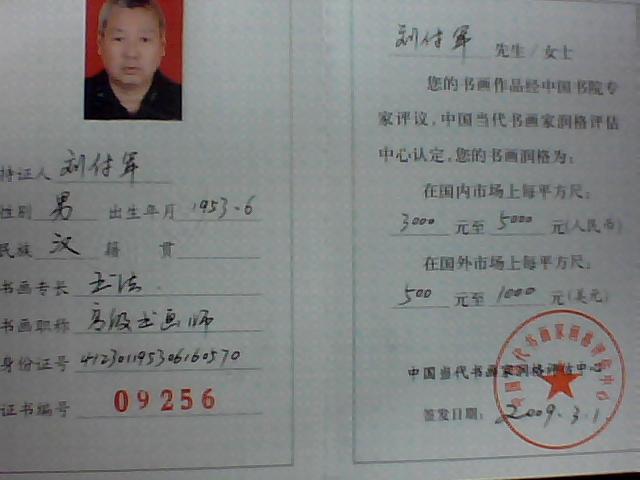 持证人 刘付军
性别 男 出生年月 1953.6
民族 汉 籍贯
书画专长 书法
书画职称 高级书画师
身份证号 412301195306160570
证书编号 09256
刘付军 先生/女士
您的书画作品经中国书院专
家评议，中国当代书画家润格评估
中心认定，您的书画润格为：
在国内市场上每平方尺：
3000 元至 5000 元(人民币)
在国外市场上每平方尺：
500 元至 1000 元(美元)
中国当代书画家润格评估中心
签发日期：2009.3.1
中国当代书画家润格评估中心